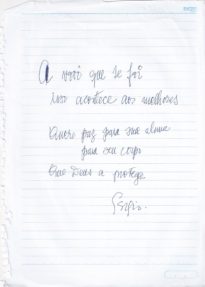 A você que se foi
isso acontece aos melhores
Quero paz para sua alma
para seu corpo
Que Deus a proteja
Sergio.